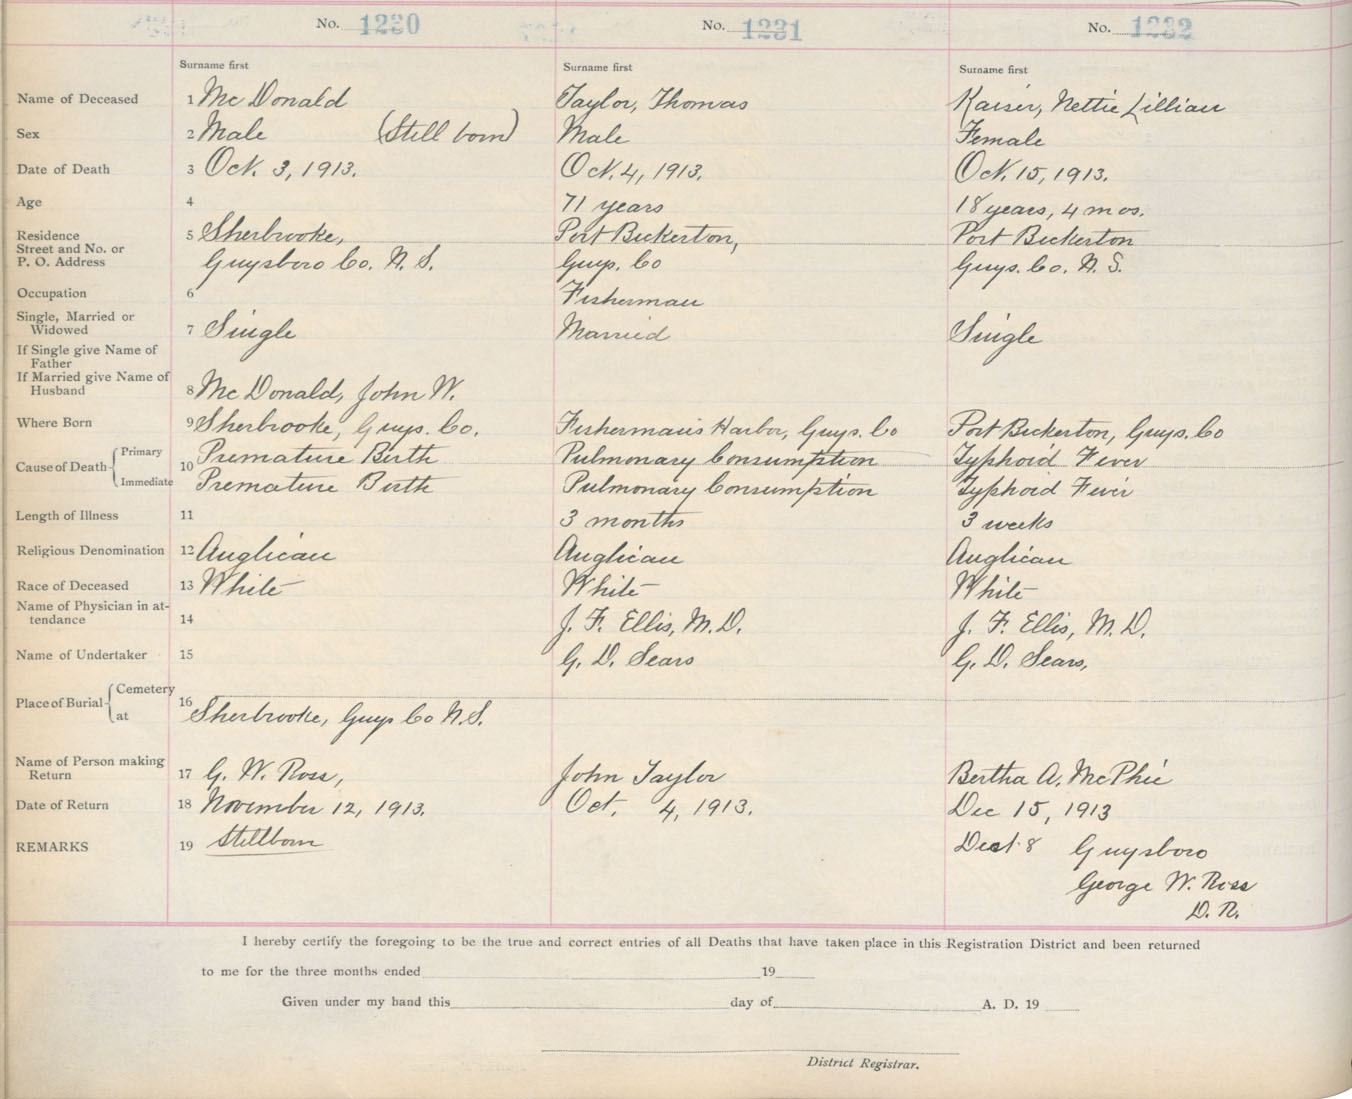 No. 1230 No. 1231 No. 1232
Surname first Surname first Surname first
Name of Deceased 1 Mc Donald Taylor, Thomas Kaiser, Nettie Lillian
Sex 2 Male (Still born) Male Female
Date of Death 3 Oct. 3, 1913. Oct. 4, 1913. Oct. 15, 1913.
Age 4 71 years 18 years, 4 mos.
Residence 5 Sherbrooke, Port Bickerton, Port Bickerton
Street and No. or
P. O. Address Guysboro Co. N. S. Guys. Co Guys. Co. N. S.
Occupation 6 Fisherman
Single, Married or
Widowed 7 Single Married Single
If Single give Name of
Father
If Married give Name of
Husband 8 Mc Donald, John W.
Where Born 9 Sherbrooke, Guys. Co. Fisherman's Harbor, Guys. Co Port Bickerton, Guys. Co
Cause of Death Primary 10 Premature Birth Pulmonary Consumption Typhoid Fever
Immediate Premature Birth Pulmonary Consumption Typhoid Fever
Length of Illness 11 3 months 3 weeks
Religious Denomination 12 Anglican Anglican Anglican
Race of Deceased 13 White White White
Name of Physician in at-
tendance 14 J. F. Ellis, M. D. J. F. Ellis, M. D.
Name of Undertaker 15 G. D. Sears G. D. Sears,
Place of Burial Cemetery 16
at Sherbrooke, Guys Co N. S.
Name of Person making
Return 17 G. W. Ross, John Taylor Bertha A. McPhie
Date of Return 18 November 12, 1913. Oct. 4, 1913. Dec 15, 1913
REMARKS 19 Stillborn Dist 8 Guysboro
George W. Ross
D. R.
I hereby certify the foregoing to be the true and correct entries of all Deaths that have taken place in this Registration District and been returned
to me for the three months ended 19
Given under my hand this day of A. D. 19
District Registrar.